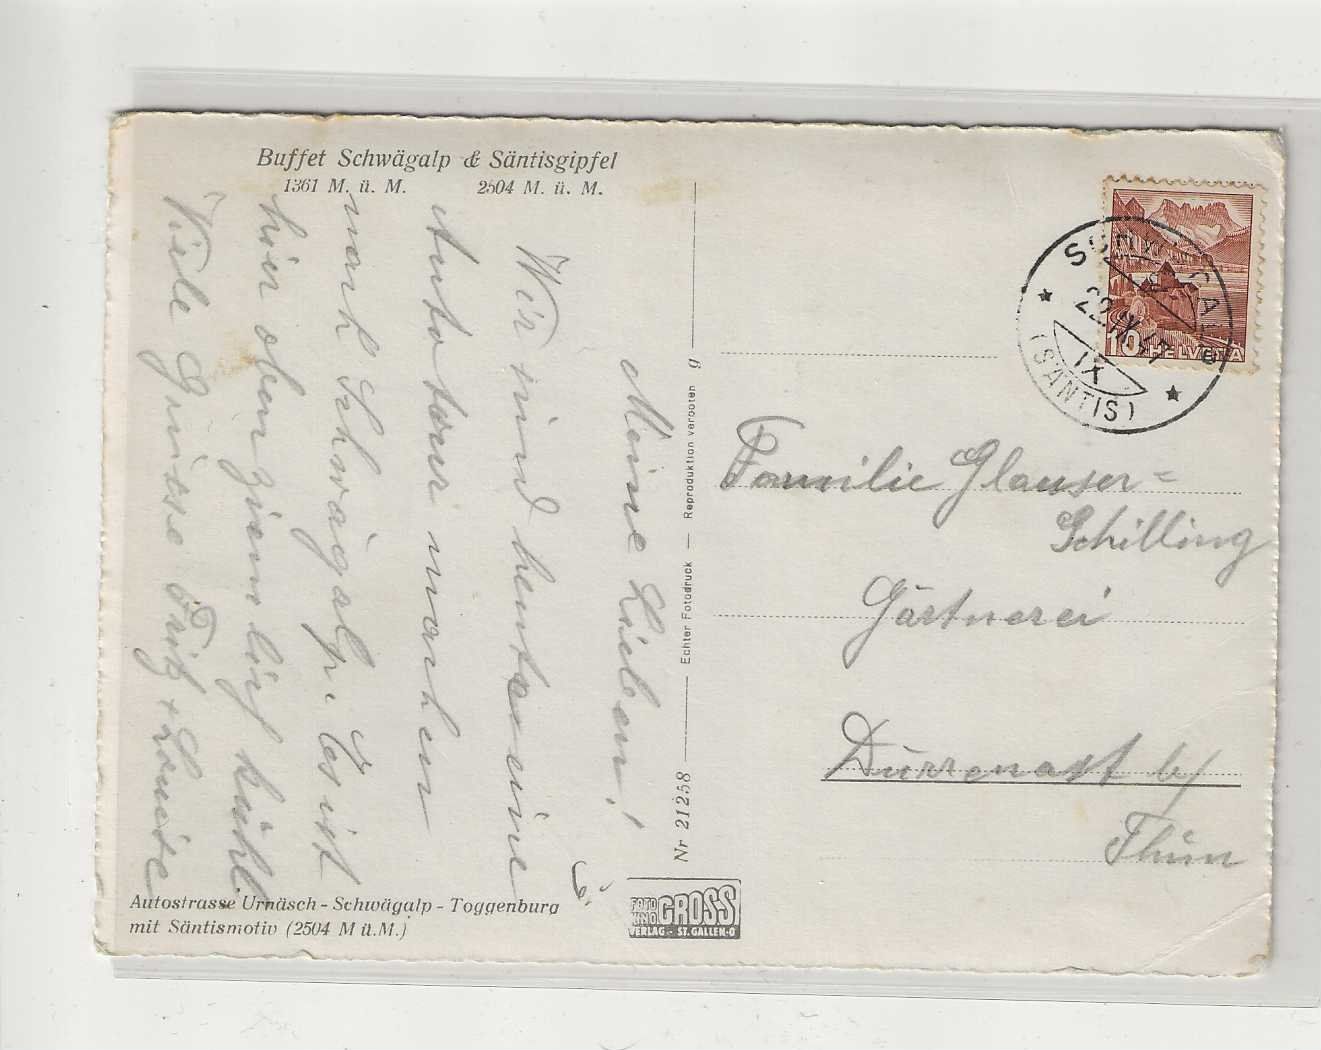 Buffet Schwägalp & Säntisgipfel
1361 M. ü. M. 2504 M. ü. M.
Meine Lieben!
Wir sind heute eine
Autotour machen
nach Schwägalp. Es ist
hier oben ziemlich kühl
Viele Grüsse Fritz + Louise
Autostrasse Urnäsch - Schwägalp - Toggenburg
mit Säntismotiv (2504 M ü.M.)
Nr 21258 Echter Fotodruck — Reproduktion verboten g
FOTO UND GROSS
VERLAG - ST. GALLEN-O
SCHWÄGALP
22.IX.
IX
(SÄNTIS)
10 HELVETIA
Familie Glauser=
Schilling
Gärtnerei
Dürrenast b/
Thun